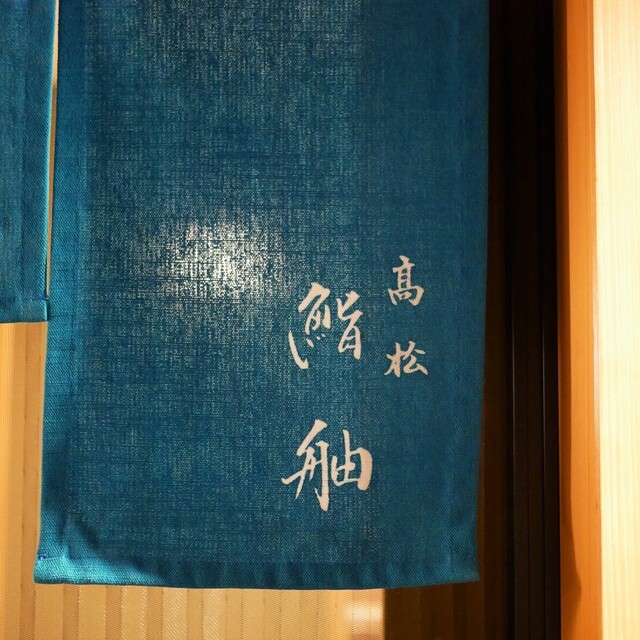 髙松
鮨舳